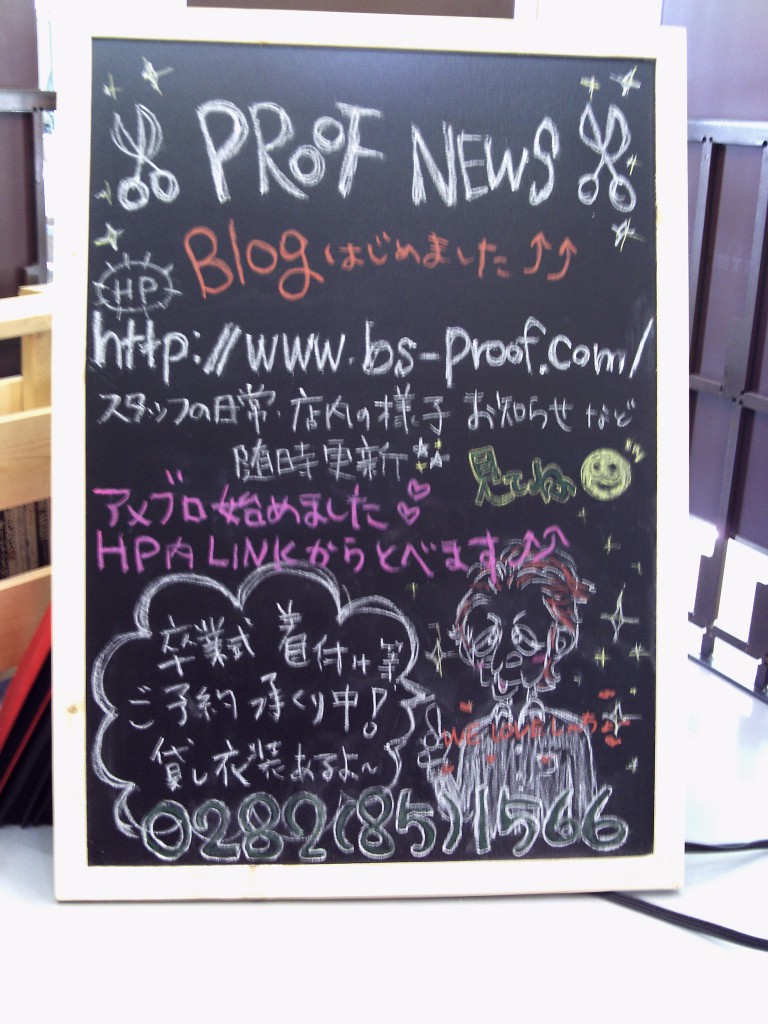 PROOF NEWS
Blog はじめました↑↑
HP
http://www.bs-proof.com/
スタッフの日常・店内の様子 お知らせ など
随時更新
見てね
アメブロ始めました♡
HP内 LINKからとべます↑↑
卒業式 着付け等
ご予約 承くり中!
貸し衣装あるよ〜
LOVE
0282(85)1566